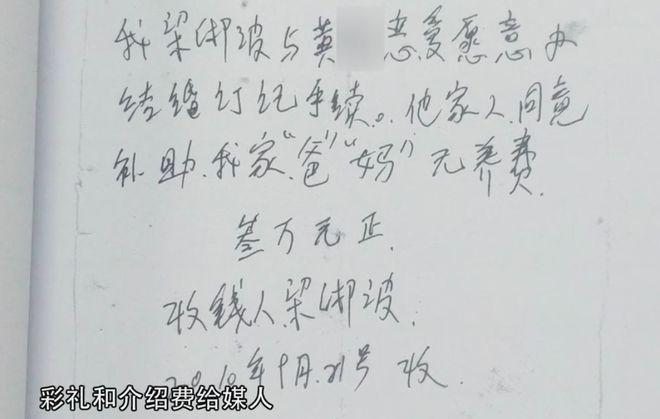 我梁湖波与黄 恋爱愿意办
结婚订记手续。他家人同意
补助我家“爸”“妈”元养费
叁万元正.
收钱人梁湖波.
2010年9月.21号 收.
彩礼和介绍费给媒人